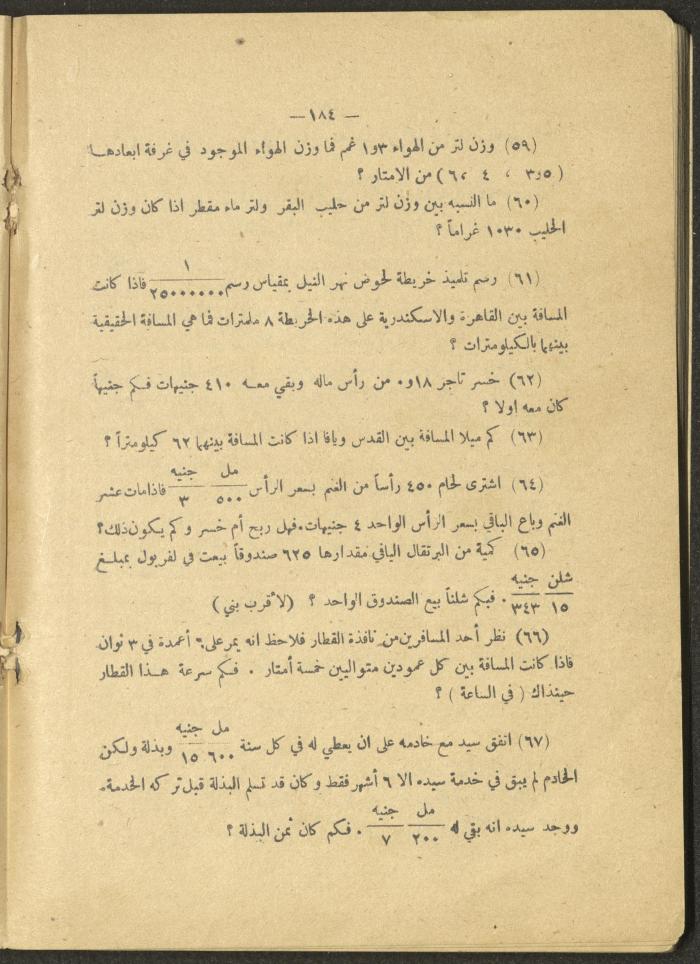 — ١٨٤ —
(٥٩) وزن لتر من الهواء ٣و١ غم فما وزن الهواء الموجود في غرفة ابعادها
(٥و٣ ، ٤ ، ٦) من الامتار ؟
(٦٠) ما النسبه بين وزن لتر من حليب البقر ولتر ماء مقطر اذا كان وزن لتر
الحليب ١٠٣٠ غراماً ؟
(٦١) رسم تلميذ خريطة لحوض نهر النيل بمقياس رسم ١/٢٥٠٠٠٠٠٠ فاذا كانت
المسافة بين القاهرة والاسكندرية على هذه الخريطة ٨ ملمترات فما هي المسافة الحقيقية
بينهما بالكيلومترات ؟
(٦٢) خسر تاجر ١٨و٠ من رأس ماله وبقي معه ٤١٠ جنيهات فكم جنيهاً
كان معه اولا ؟
(٦٣) كم ميلا المسافة بين القدس ويافا اذا كانت المسافة بينهما ٦٢ كيلومتراً ؟
مل جنيه
(٦٤) اشترى لحام ٤٥٠ رأساً من الغنم بسعر الرأس ٥٠٠ ٣ فاذا مات عشر
الغنم وباع الباقي بسعر الرأس الواحد ٤ جنيهات. فهل ربح أم خسر وكم يكون ذلك؟
(٦٥) كمية من البرتقال اليافي مقدارها ٦٢٥ صندوقاً بيعت في لفربول بمبلغ
شلن جنيه
١٥ ٣٤٣ . فبكم شلناً بيع الصندوق الواحد ؟ (لأقرب بني)
(٦٦) نظر أحد المسافرين من نافذة القطار فلاحظ انه يمر على ٦ أعمدة في ٣ ثوان
فاذا كانت المسافة بين كل عمودين متواليين خمسة أمتار . فكم سرعة هذا القطار
حينذاك (في الساعة) ؟
مل جنيه
(٦٧) اتفق سيد مع خادمه على ان يعطي له في كل سنة ٦٠٠ ١٥ وبذلة ولكن
الخادم لم يبق في خدمة سيده الا ٦ أشهر فقط وكان قد تسلم البذلة قبل تركه الخدمة.
مل جنيه
ووجد سيده انه بقي له ٢٠٠ ٧ . فكم كان ثمن البذلة ؟